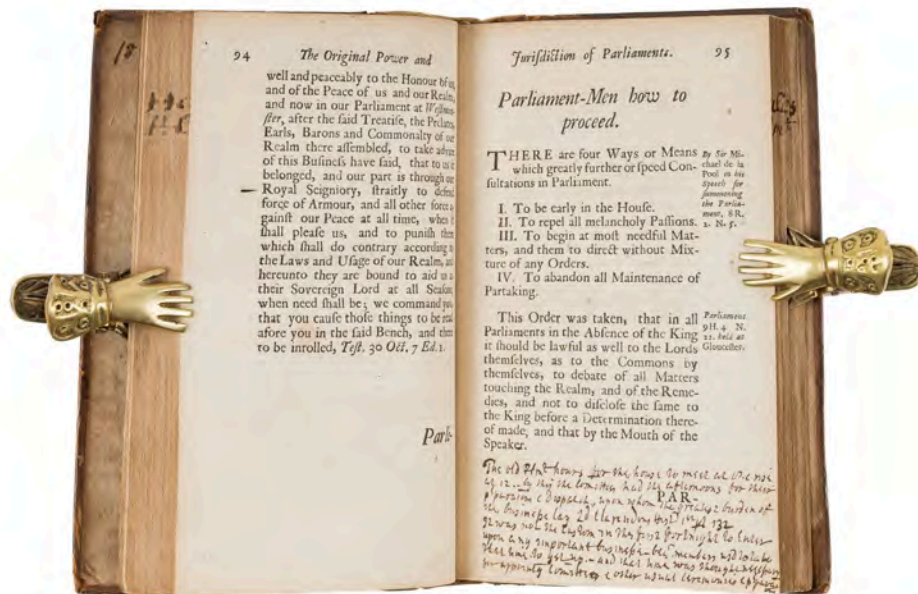 94 The Original Power and
well and peaceably to the Honour of us,
and of the Peace of us and our Realm,
and now in our Parliament at Westmin-
ster, after the said Treatise, the Prelates,
Earls, Barons and Commonalty of our
Realm there assembled, to take advice
of this Business have said, that to us it
belonged, and our part is through our
Royal Seigniory, straitly to defend
force of Armour, and all other force a-
gainst our Peace at all time, when it
shall please us, and to punish them
which shall do contrary according to
the Laws and Usage of our Realm, and
hereunto they are bound to aid us as
their Sovereign Lord at all Seasons
when need shall be; we command you
that you cause those things to be read
afore you in the said Bench, and there
to be inrolled, Test. 30 Oct. 7 Ed. 1.
Parli-
Jurisdiction of Parliaments. 95
Parliament-Men how to
proceed.
THERE are four Ways or Means
which greatly further or speed Con-
sultations in Parliament.
By Sir Mi-
chael de la
Pool in his
Speech for
summoning
the Parlia-
ment, 8 R.
2. N. 5.
I. To be early in the House.
II. To repel all melancholy Passions.
III. To begin at most needful Mat-
ters, and them to direct without Mix-
ture of any Orders.
IV. To abandon all Maintenance of
Partaking.
This Order was taken, that in all
Parliaments in the Absence of the King
it should be lawful as well to the Lords
themselves, as to the Commons by
themselves, to debate of all Matters
touching the Realm, and of the Reme-
dies, and not to disclose the same to
the King before a Determination there-
of made, and that by the Mouth of the
Speaker.
Parliament
9 H. 4 N.
21. held at
Gloucester.
PAR-
The old hours for the house to meet
the had the afternoons for their
dispatch, upon whom the greatest burden of
the businesse lay
It was not the custom in the first fortnight to enter
upon any important businesse
that time was thought
for other usual ceremonies